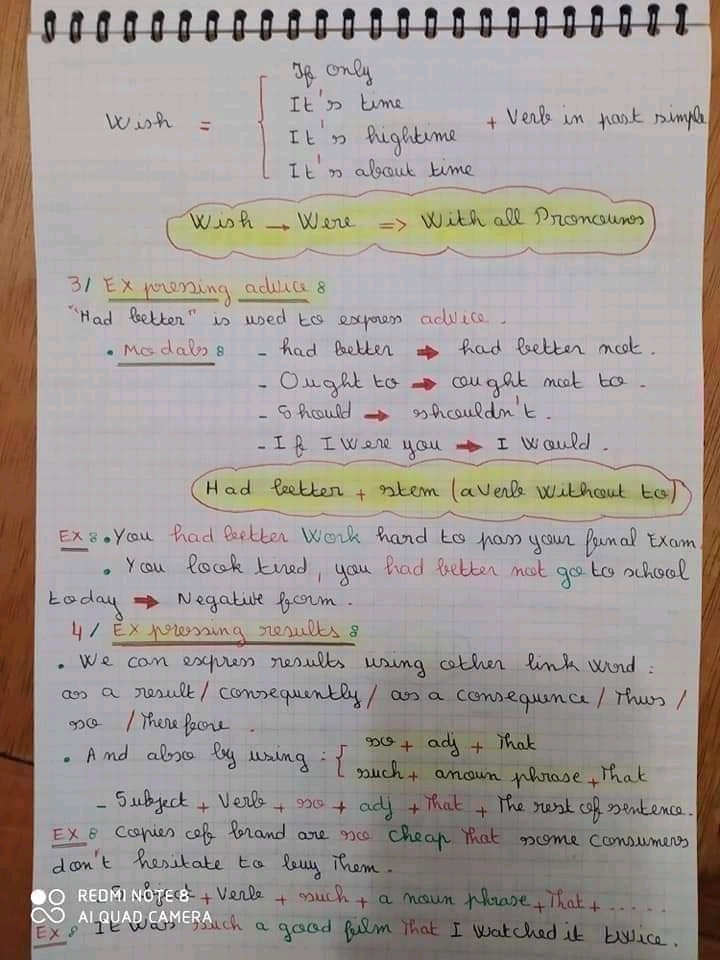 If only
It's time
Wish = + Verb in past simple
It's hightime
It's about time
Wish → Were => With all Pronouns
3/ Expressing advice :
"Had better" is used to express advice.
• Modals : - had better → had better not.
- Ought to → ought not to.
- Should → shouldn't.
- If I Were you → I Would.
Had better + stem (a Verb Without to)
EX : • You had better Work hard to pass your final Exam
• You look tired, you had better not go to school
today → Negative form.
4/ Expressing results :
• We can express results using other link word :
as a result / consequently / as a consequence / Thus /
so / Therefore.
• And also by using : { so + adj + That
such + a noun phrase + That
- Subject + Verb + so + adj + That + The rest of sentence.
EX : Copies of brand are so cheap That some consumers
don't hesitate to buy Them.
- Subject + Verb + such + a noun phrase + That + ......
EX : It was such a good film That I watched it twice.
REDMI NOTE 8
AI QUAD CAMERA